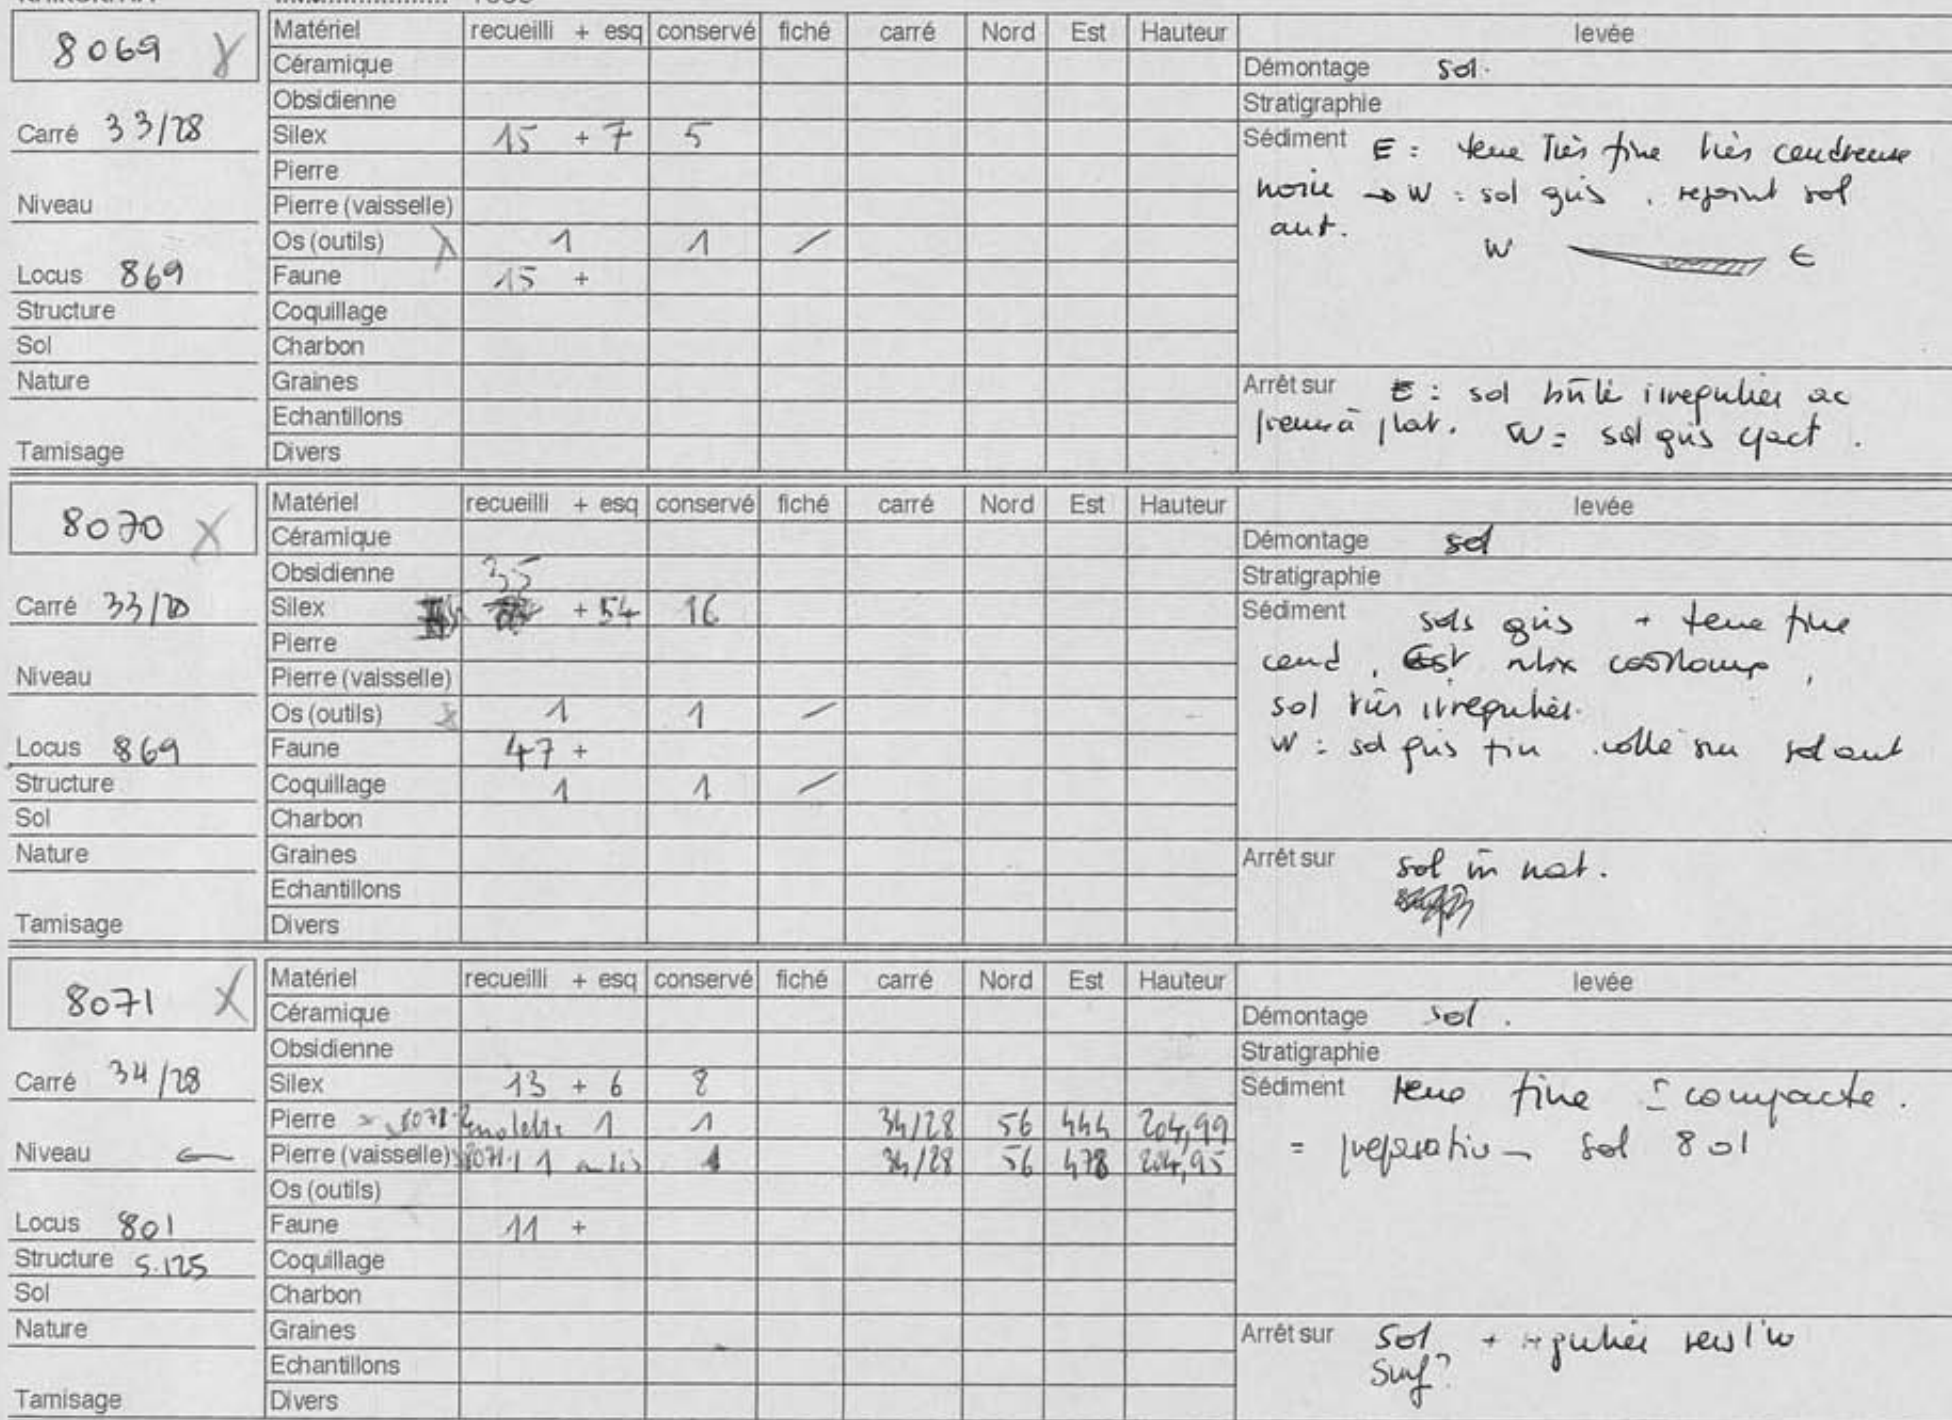 8069 X
Carré 33/28
Niveau
Locus 869
Structure
Sol
Nature
Tamisage
Matériel recueilli + esq conservé fiché carré Nord Est Hauteur
Céramique
Obsidienne
Silex 15 + 7 5
Pierre
Pierre (vaisselle)
Os (outils) 1 1 /
Faune 15 +
Coquillage
Charbon
Graines
Echantillons
Divers
levée
Démontage sol.
Stratigraphie
Sédiment E : terre très fine très cendreuse
noire → W : sol gris , rejoint sol
ant.
W E
Arrêt sur E : sol brûlé irregulier ac
à plat. W = sol gris cpact .
8070 X
Carré 33/28
Niveau
Locus 869
Structure
Sol
Nature
Tamisage
Matériel recueilli + esq conservé fiché carré Nord Est Hauteur
Céramique
Obsidienne
Silex 35 + 54 16
Pierre
Pierre (vaisselle)
Os (outils) 1 1 /
Faune 47 +
Coquillage 1 1 /
Charbon
Graines
Echantillons
Divers
levée
Démontage sol
Stratigraphie
Sédiment sols gris + terre fine
cend , Est
sol très irregulier.
W : sol gris fin collé sur sol ant
Arrêt sur sol in nat.
8071 X
Carré 34/28
Niveau ←
Locus 801
Structure S.125
Sol
Nature
Tamisage
Matériel recueilli + esq conservé fiché carré Nord Est Hauteur
Céramique
Obsidienne
Silex 13 + 6 8
Pierre 8071-2 molette 1 1 34/28 56 444 204,99
Pierre (vaisselle) 8071-1 1 1 34/28 56 478 204,95
Os (outils)
Faune 11 +
Coquillage
Charbon
Graines
Echantillons
Divers
levée
Démontage sol .
Stratigraphie
Sédiment terre fine ± compacte .
= preparation sol 801
Arrêt sur sol + regulier vers l'W
Surf?